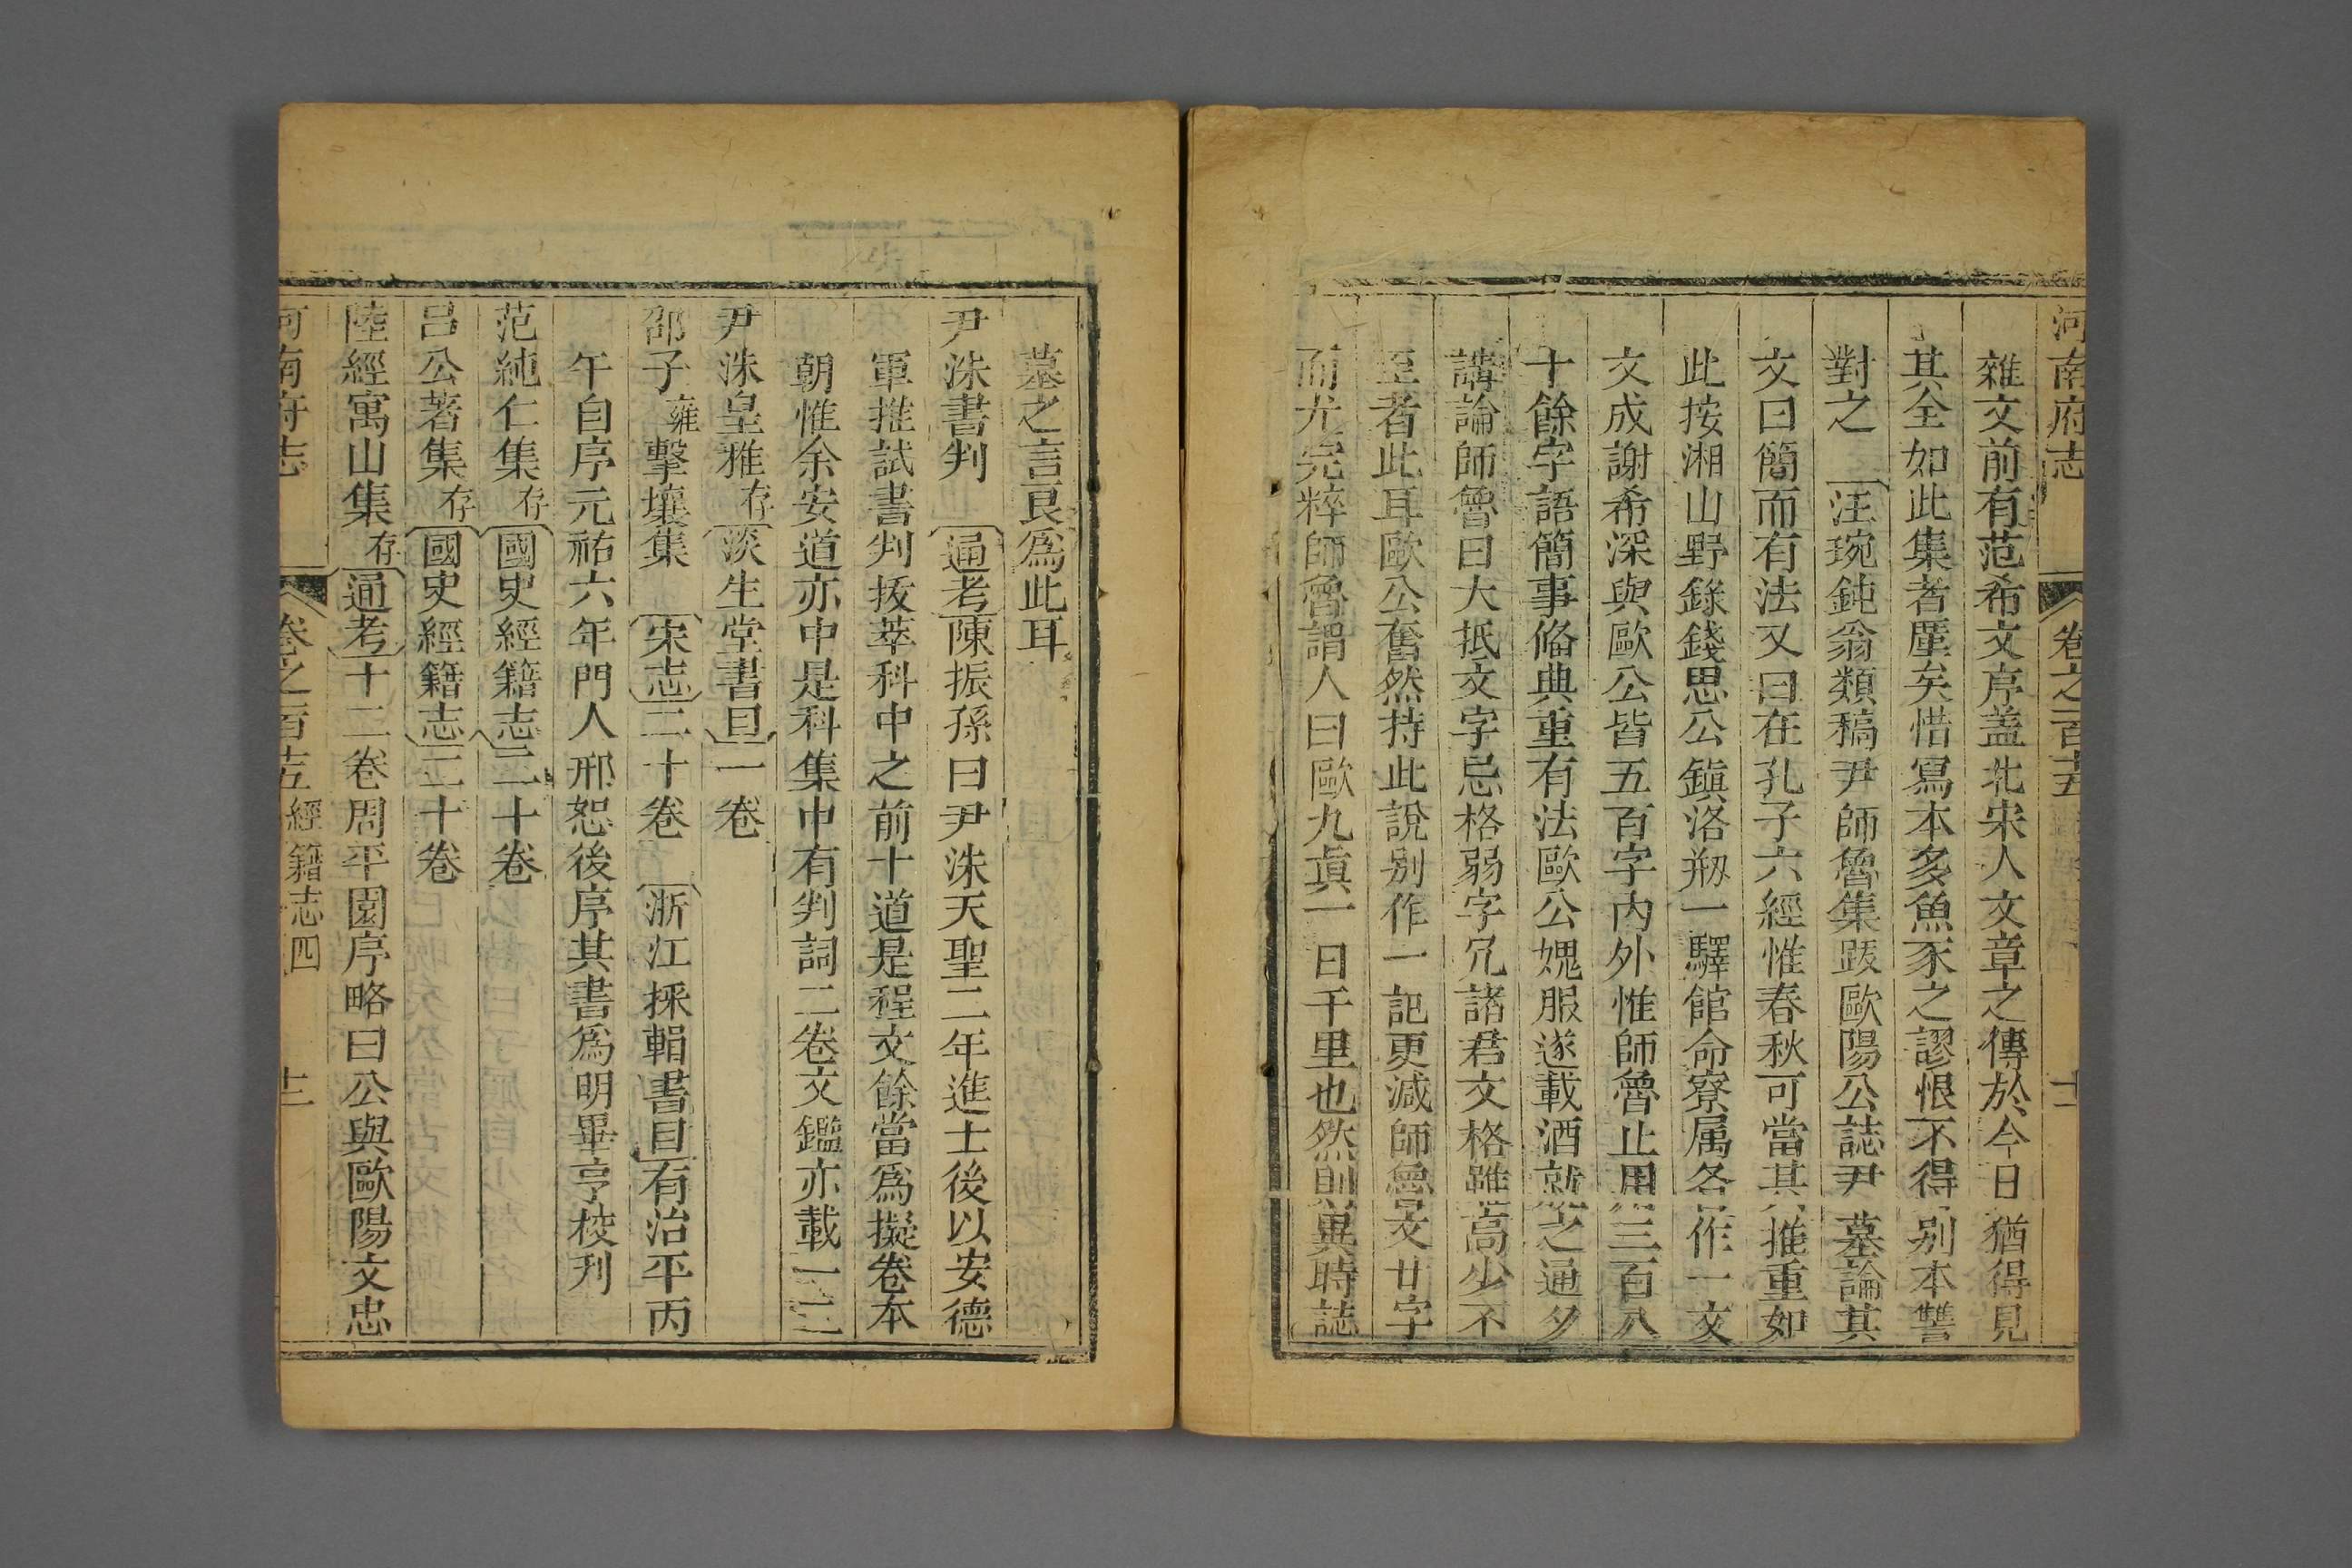 河南府志 卷之一百十五 十二
雜文前有范希文序盖北宋人文章之傳於今日猶得見
其全如此集者厪矣惜寫本多魚豕之謬恨不得别本讐
對之 汪琬鈍翁類稿尹師魯集跋歐陽公誌尹墓論其
文曰簡而有法又曰在孔子六經惟春秋可當其推重如
此按湘山野錄錢思公鎮洛剏一驛館命寮属各作一文
文成謝希深與歐公皆五百字内外惟師魯止用三百八
十餘字語簡事偹典重有法歐公媿服遂載酒就之通夕
講論師魯曰大抵文字忌格弱字冗諸君文格雖高少不
至者此耳歐公奮然持此說别作一記更减師魯文廿字
而尤完粹師魯謂人曰歐九真一日千里也然則異時誌
墓之言良爲此耳
尹洙書判 通考陳振孫曰尹洙天聖二年進士後以安德
軍推試書判拔萃科中之前十道是程文餘當爲擬卷本
朝惟余安道亦中是科集中有判詞二卷文鑑亦載一二
尹洙皇雅存淡生堂書目一卷
邵子雍擊壤集 宋志二十卷 浙江採輯書目有治平丙
午自序元祐六年門人邢恕後序其書爲明畢亨校刋
范純仁集存國史經籍志二十卷
呂公著集存國史經籍志二十卷
陸經寓山集存通考十二卷周平園序略曰公與歐陽文忠
河南府志 卷之一百十五 經籍志四 十三